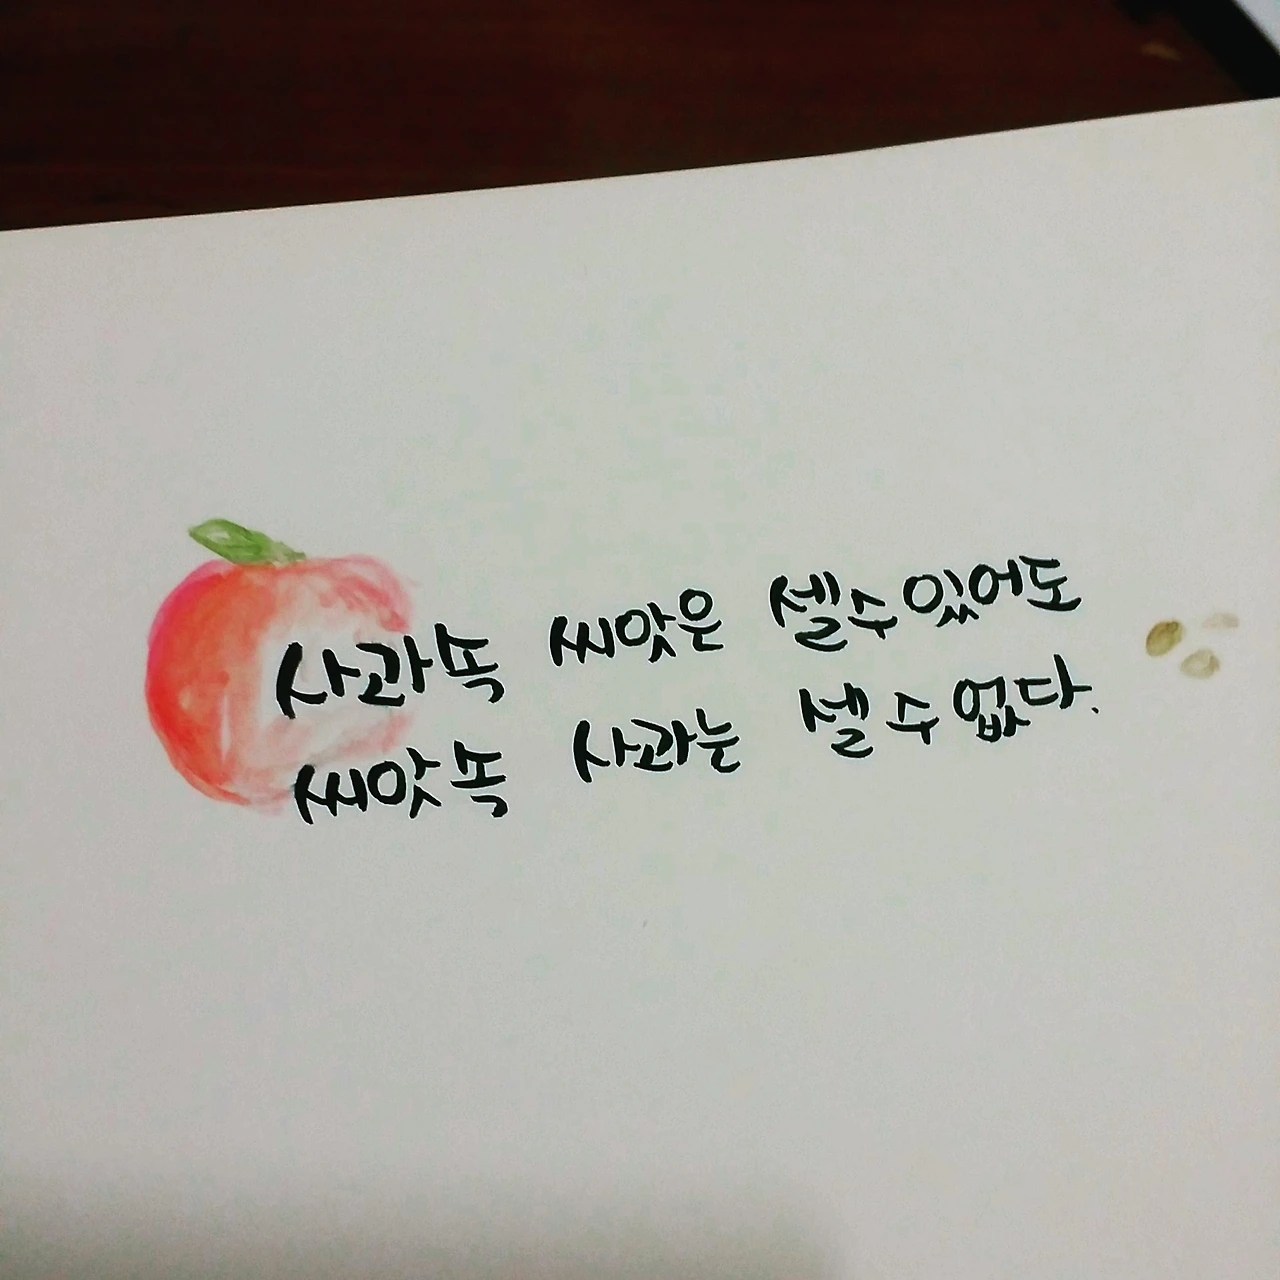 사과속 씨앗은 셀수있어도
씨앗속 사과는 셀수없다.